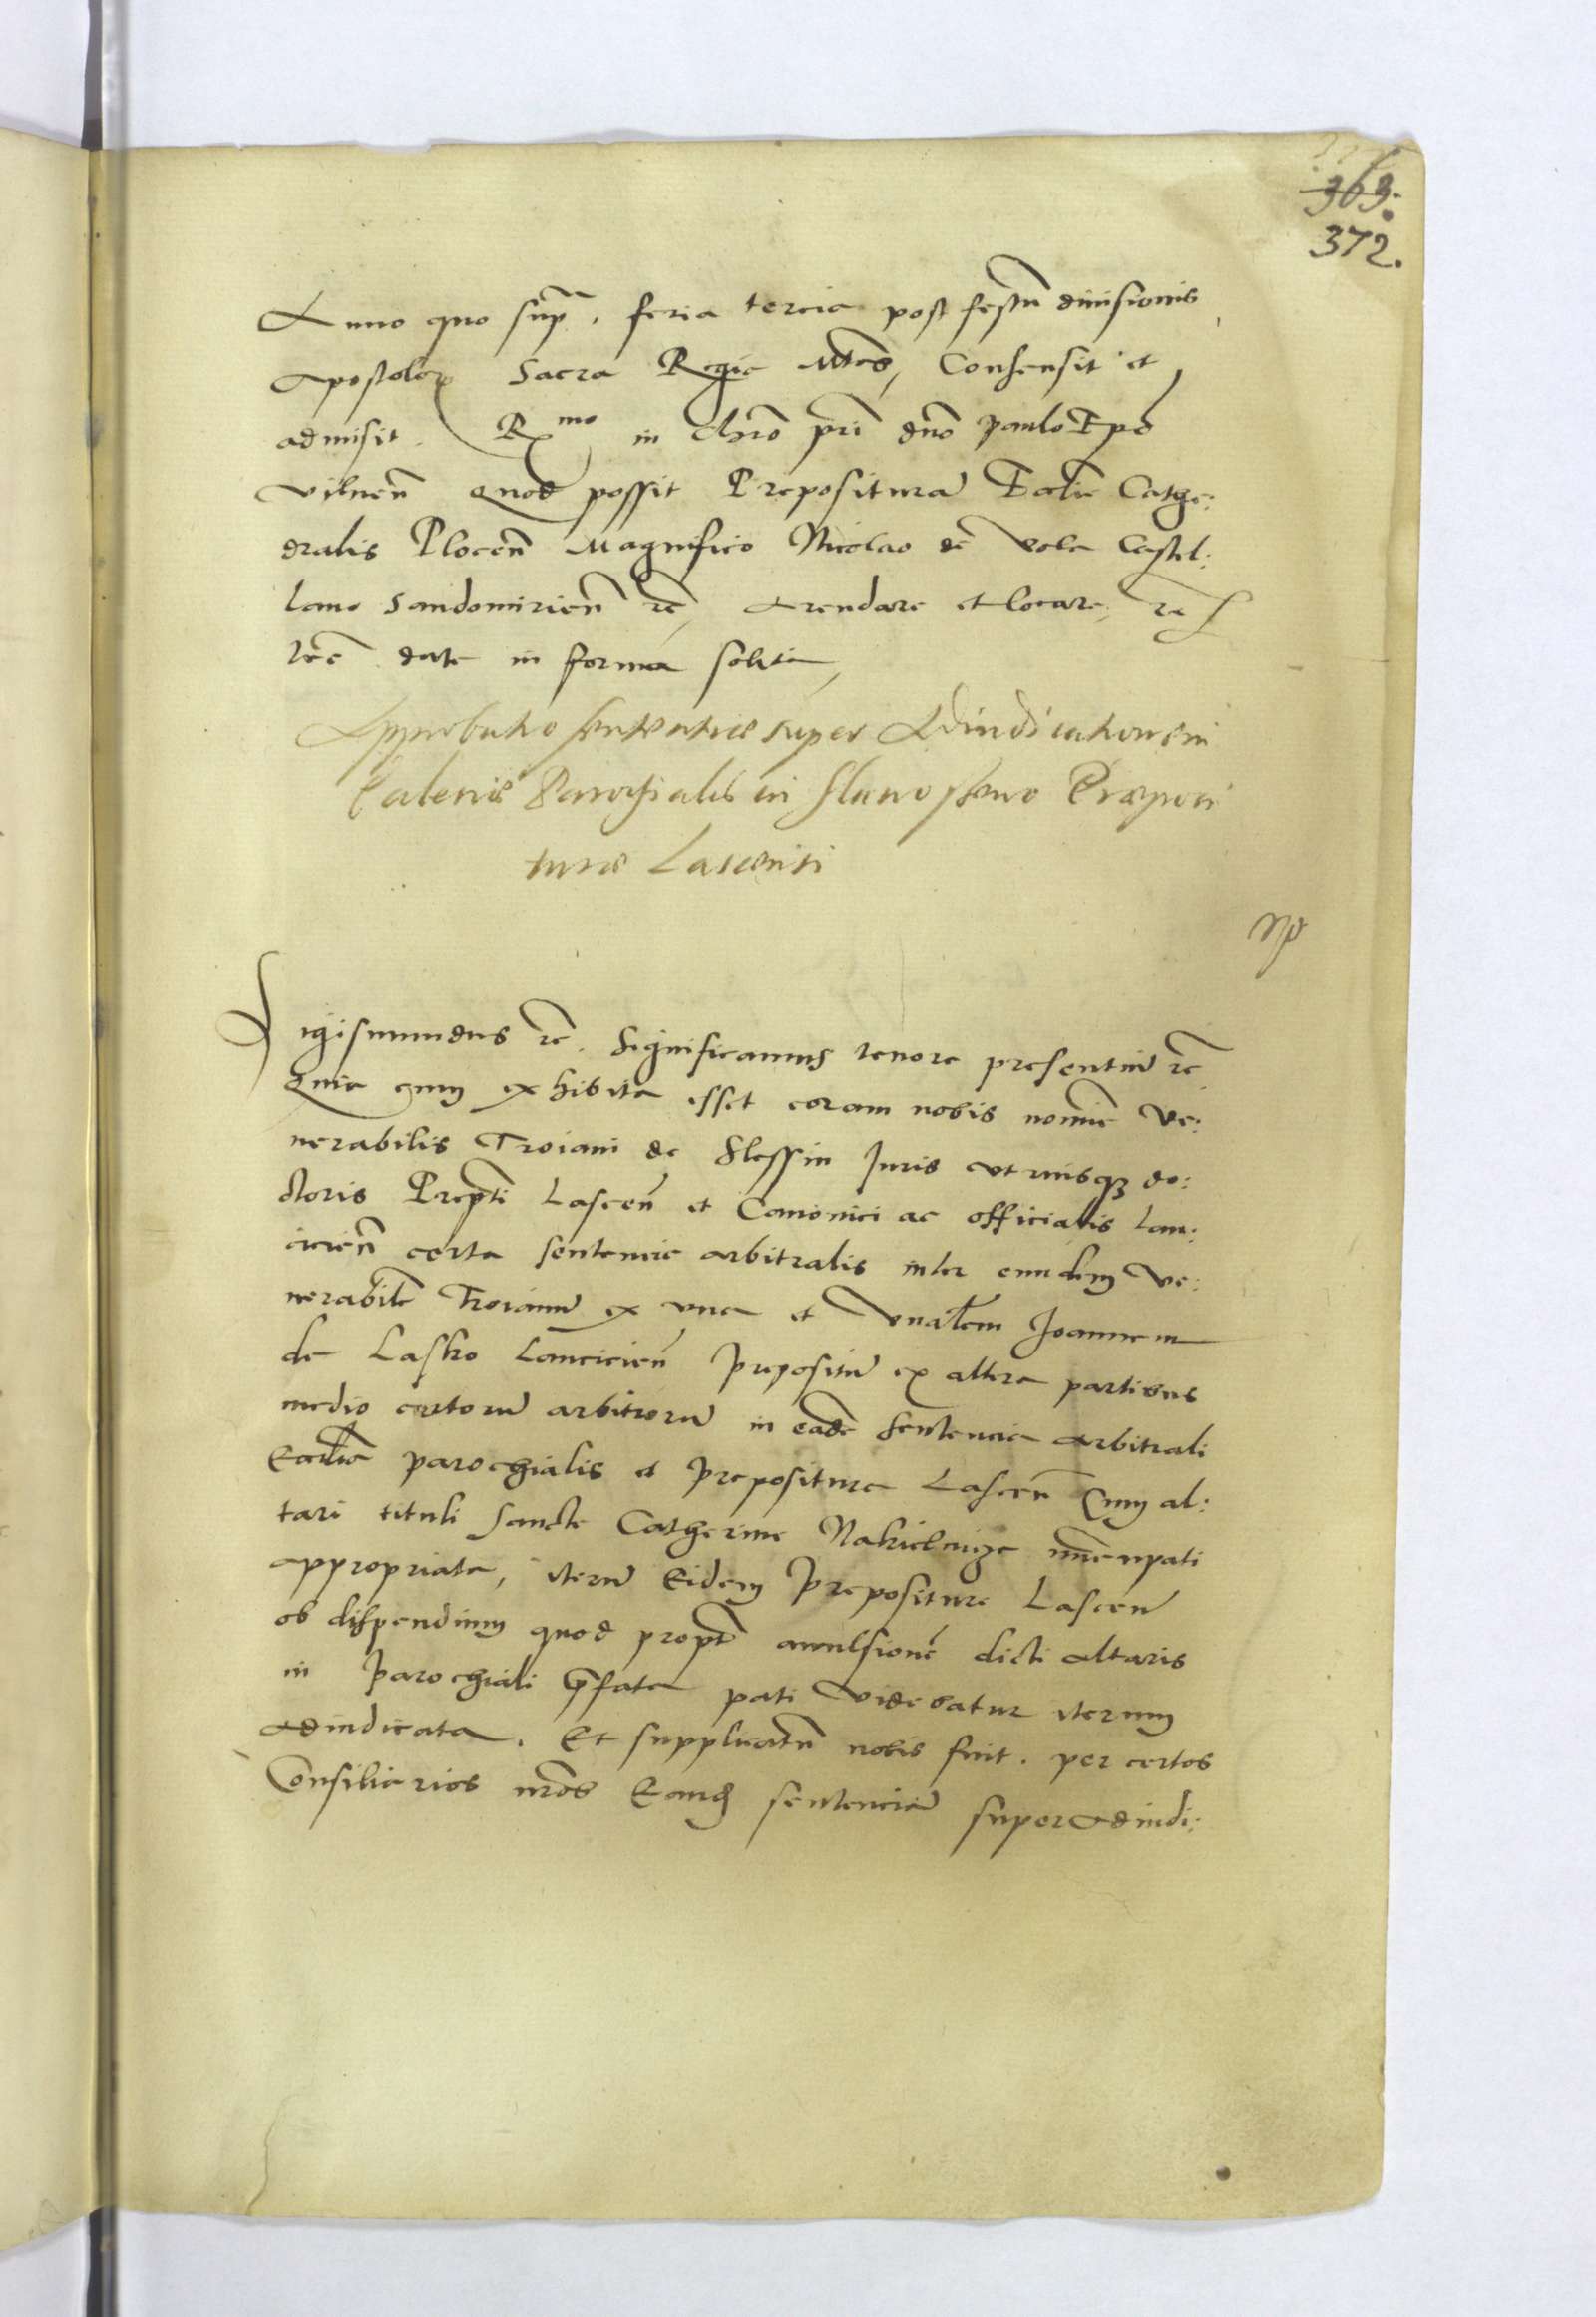 363.
372.
Anno quo sup̃, feria tercia post festũ diuisionis
Apostolor̃ Sacra Regia Mtãs, Consensit et
admisit. Rmo in Chrõ pr̃i dño Paulo Epõ
vilneñ Quod possit Preposituraм̃ Eccliẽ Cathe:
dralis Ploceñ Magnifico Nicolao de Vola Castel:
lano Sandomirieñ rc̃, Arendare et locare, rc
lr̃e date in forma solita,
Approbatio sententiæ super Adiudicationem
Parochialis in Præposi
turæ Lascensi
Sigismundus rc̃. Significamus tenore presentiũ rc̃
Quia cum exhibita esset coram nobis nomine Ve:
nerabilis Troiani de Slessin Juris vtriusq; do:
ctoris Prepti Lasceñ et Canonici ac officialis Lan:
cicieñ certa sentencia arbitralis inter eundem Ve:
nerabilẽ Troianũ ex vna et Vnãlem Joannem
de Lasko Lancicieñ Prepositũ ex altera partibus
medio certorũ arbitrorũ in eadẽ sentencia Arbitrali
Eccliã parochialis et Prepositure Lasceñ Cum al:
tari tituli Sancte Catherine nũncupati
appropriata, iterũ Eidem Prepositure Lasceñ
ob dispendium quod propt̃ auulsionẽ dicti altaris
in Parochiali p̃fata pati videbatur iterum
Adiudicata. Et supplicatũ nobis fuit. per certos
Consiliarios nr̃os Eand̃ sentenciã super Adiudi: